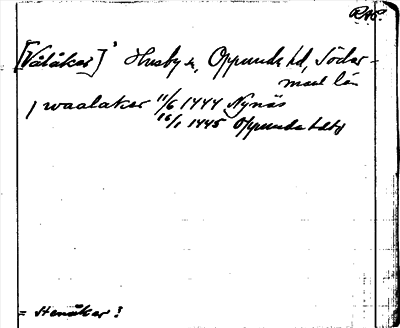 RAP.
[Vålåker] Husby s., Oppunda hd, Söder-
manl. län
j waalaker 11/6 1444 Nynäs
16/1 1445 Oppunda hdtg
= Stenåker?